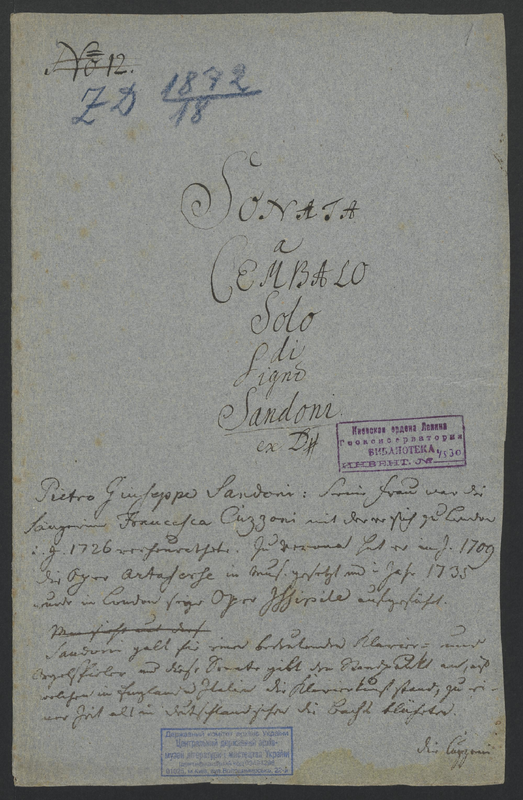 No 12.
1
ZD 1872/18
SONATA
a
CEMBALO
Solo
di
Sigre
Sandoni.
ex D#
Киевская ордена Ленина
Госконсерватория
БИБЛИОТЕКА
ИНВЕНТ. №
Pietro Giuseppe Sandoni: Seine Frau war die
Sängerin Francesca Cuzzoni mit der er sich zu London
i. J. 1726 verheurathete. In Verona hat er im J. 1709
die Oper Artaserse in Mus. gesetzt und i. Jahr 1735
wurde in London seine Oper Issipile aufgeführt.
Sandoni galt für einen bedeutenden Klavier- und
Orgelspieler und diese Sonate gibt den Standpunkt an, auf
welchem in England u Italien die Klavierkunst stand, zu ei-
ner Zeit als in Deutschland schon die Bachs blühten.
die Cuzzoni
Центральний державний архів-
музей літератури і мистецтва України